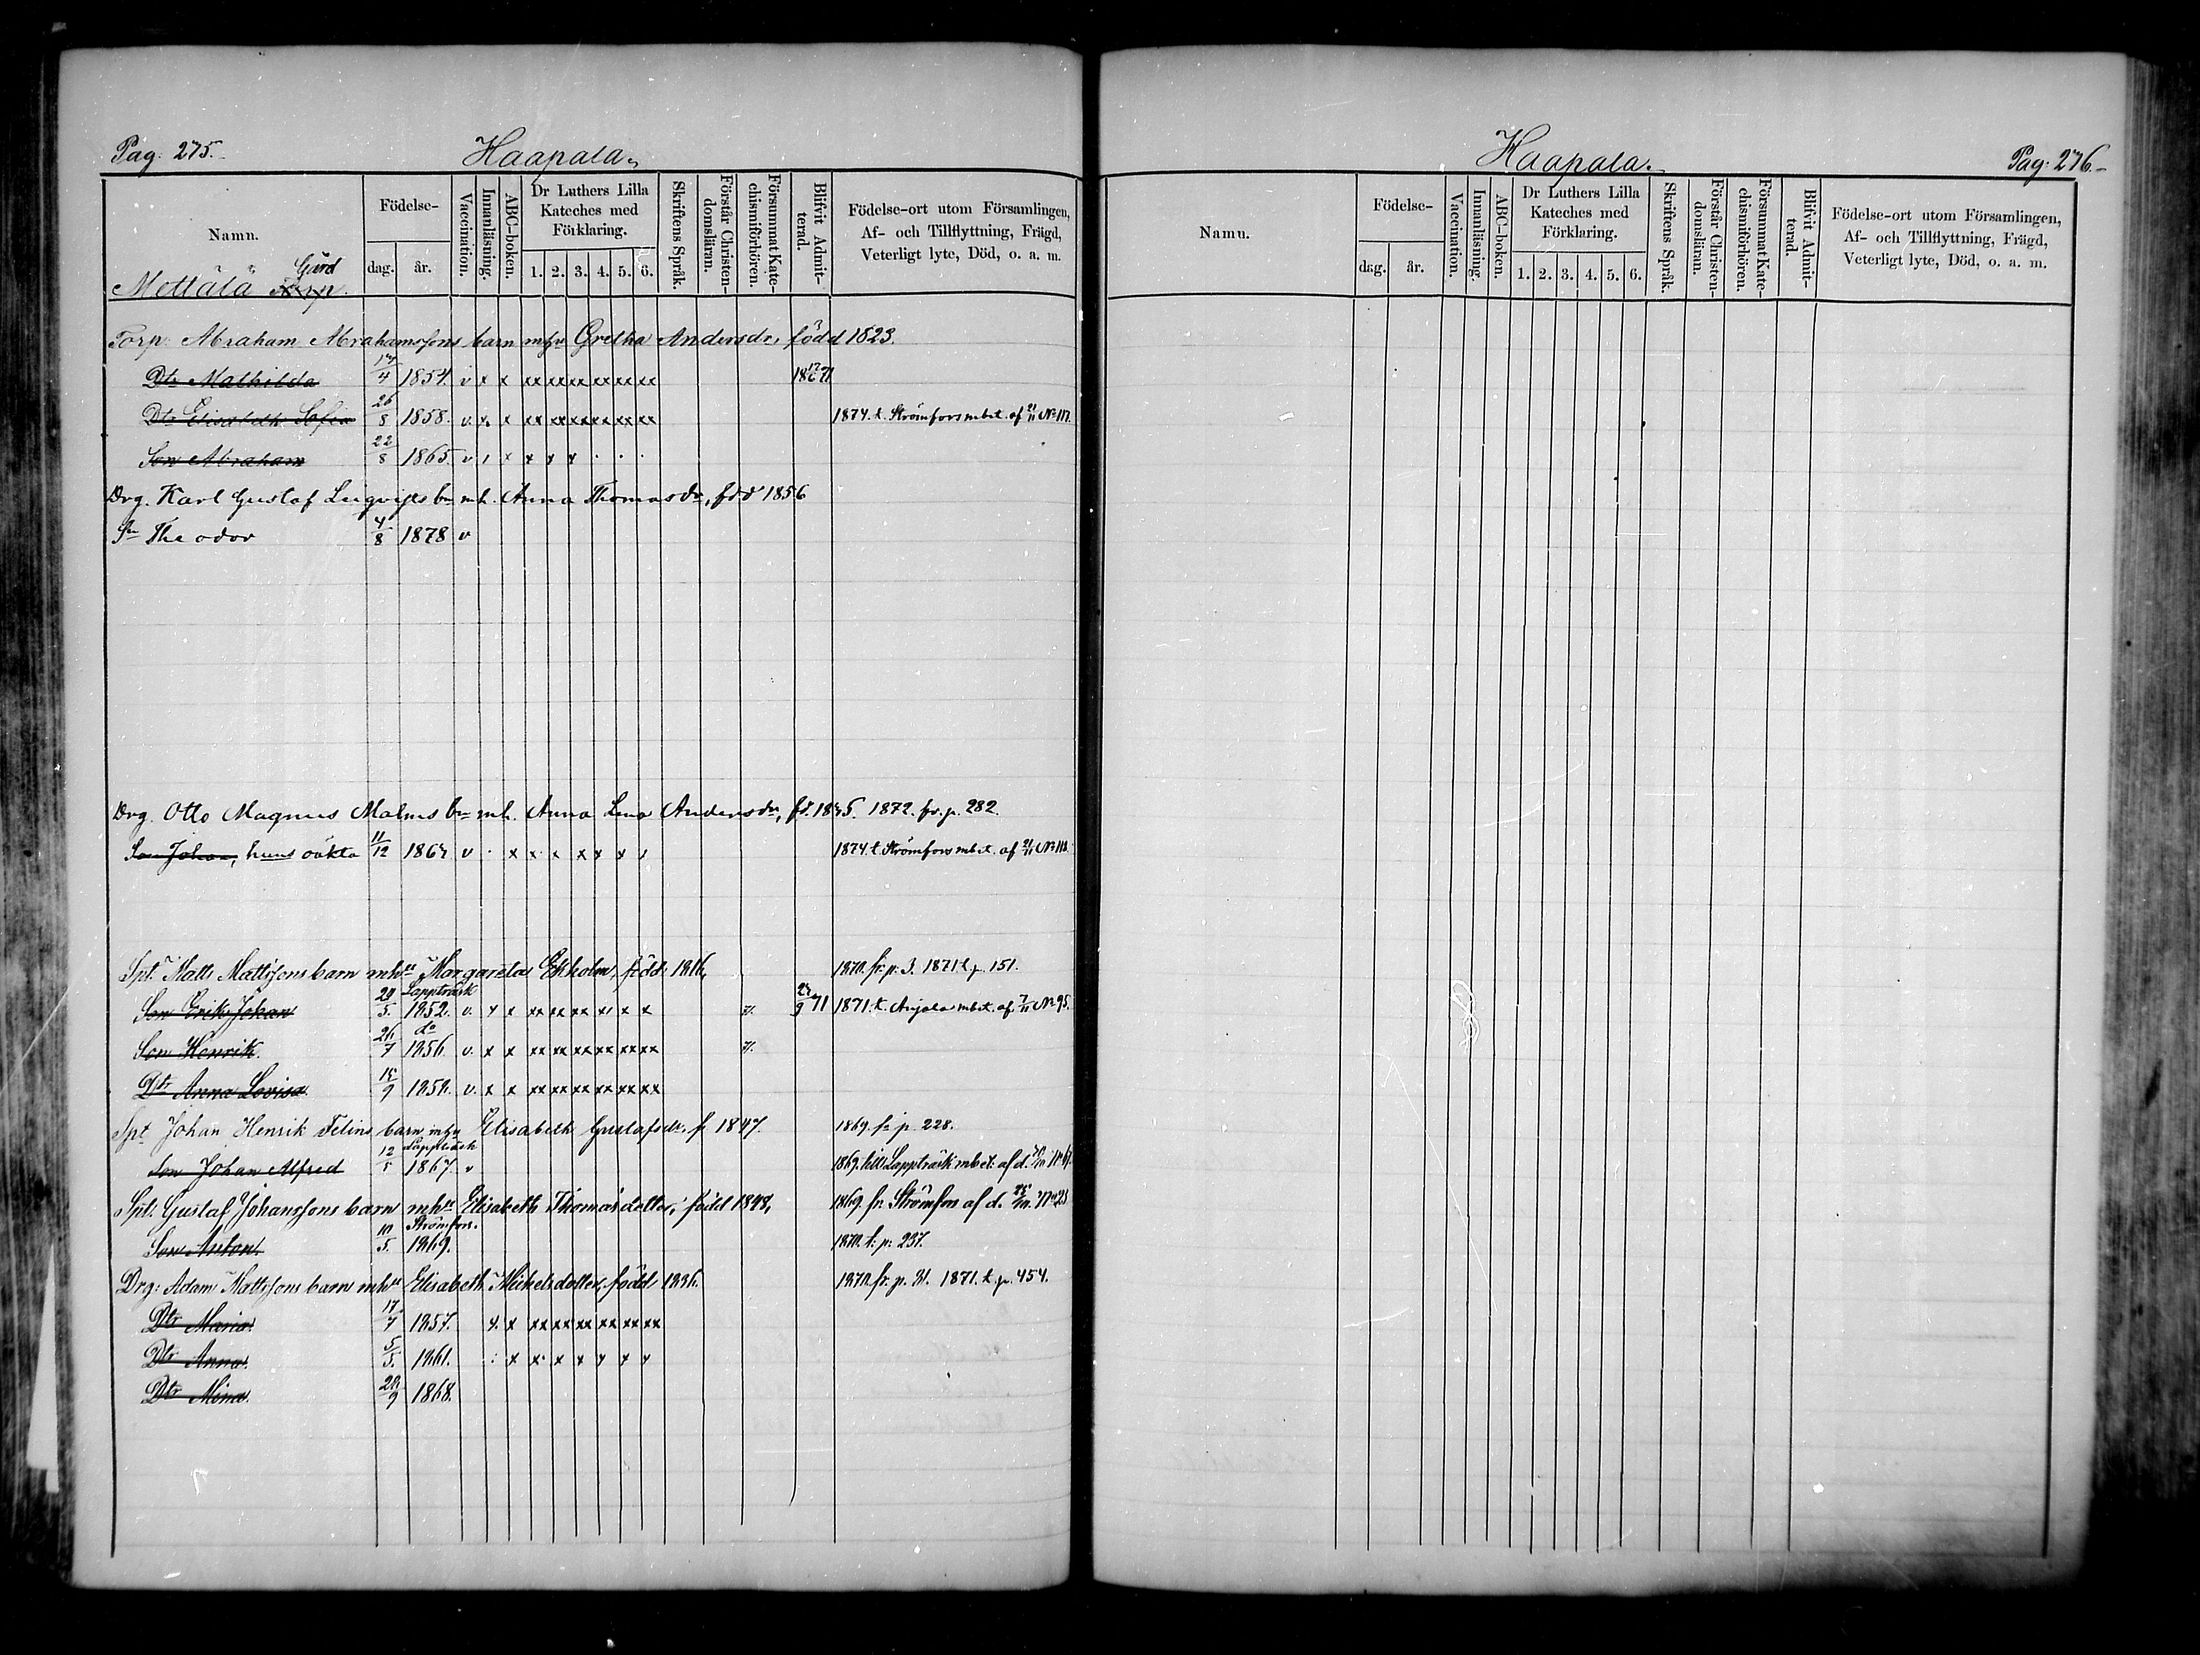 Pag. 275.
Haapala.
Namn.
Födelse-
dag.
år.
Vaccination.
Innanläsning.
ABC-boken.
Dr Luthers Lilla
Kateches med
Förklaring.
1. 2. 3. 4. 5. 6.
Skriftens Språk.
Förstår Christen-
domsläran.
Försummat Kate-
chismiförhören.
Blifvit Admit-
terad.
Födelse-ort utom Församlingen,
Af- och Tillflyttning, Frägd,
Veterligt lyte, Död, o. a. m.
Gård
Mettälä Torp.
Torp. Abraham Abrahamssons barn mhu Gretha Andersdr, född 1823.
Dtr Mathilda 17/4 1854. v x x xx xx xx xx xx xx 18 17/6 71
Dtr Elisabeth Sofia 26/8 1858. v. x. x xx xx xx xx xx xx 1874. t. Strömfors mbet. af 21/11 No 117.
Son Abraham 22/8 1865. v x x x x
Drg. Karl Gustaf bn mh. Anna Thomasdr, fdd 1856
Sn Theodor 4/8 1878 v
Drg. Otto Magnus Malms bn mh. Anna Lena Andersdr, fd. 1845. 1872. fr. p. 282.
Son Johan, huns oäkta 11/12 1864 v x x x x x x 1874. t. Strömfors mbet. af 21/11 No 118.
Spt. Matts Mattssons barn mhu Margareta Ekholm, född 1816, 1870. fr. p. 3. 1871 t. p. 151.
Lappträsk
Son Erik Johan 29/5 1852. v. x x xx xx xx x x x 7. 24/9 71 1871. t. Anjala mbet. af 7/11 No 95.
do
Son Henrik. 26/7 1856 v. x x xx xx xx xx xx xx 7.
Dtr Anna Lovisa. 15/9 1858. v. x x xx xx xx xx xx xx
Spt Johan Henrik Felins barn mhu Elisabeth Gustafsdr. f 1847. 1869. fr p. 228.
Lappträsk
Son Johan Alfred 12/5 1867. v 1869. till Lappträsk mbet. af d.
Spt. Gustaf Johanssons barn mhu Elisabeth Thomasdotter, född 1848, 1869. fr. Strömfors af d. No 25
Strömfors.
Son Anton. 10/5. 1869. 1870. t. p. 237.
Drg. Adam Mattssons barn mhu Elisabeth Mickelsdotter, född 1836. 1870. fr. p. 31. 1871. t. p. 454.
Dtr Maria. 17/7 1857. x. x xx xx xx xx xx xx
Dtr Anna. 5/5. 1861. x x x x x x x
Dtr Mina. 28/9 1868.
Haapala.
Pag. 276.
Namn.
Födelse-
dag.
år.
Vaccination.
Innanläsning.
ABC-boken.
Dr Luthers Lilla
Kateches med
Förklaring.
1. 2. 3. 4. 5. 6.
Skriftens Språk.
Förstår Christen-
domsläran.
Försummat Kate-
chismiförhören.
Blifvit Admit-
terad.
Födelse-ort utom Församlingen,
Af- och Tillflyttning, Frägd,
Veterligt lyte, Död, o. a. m.